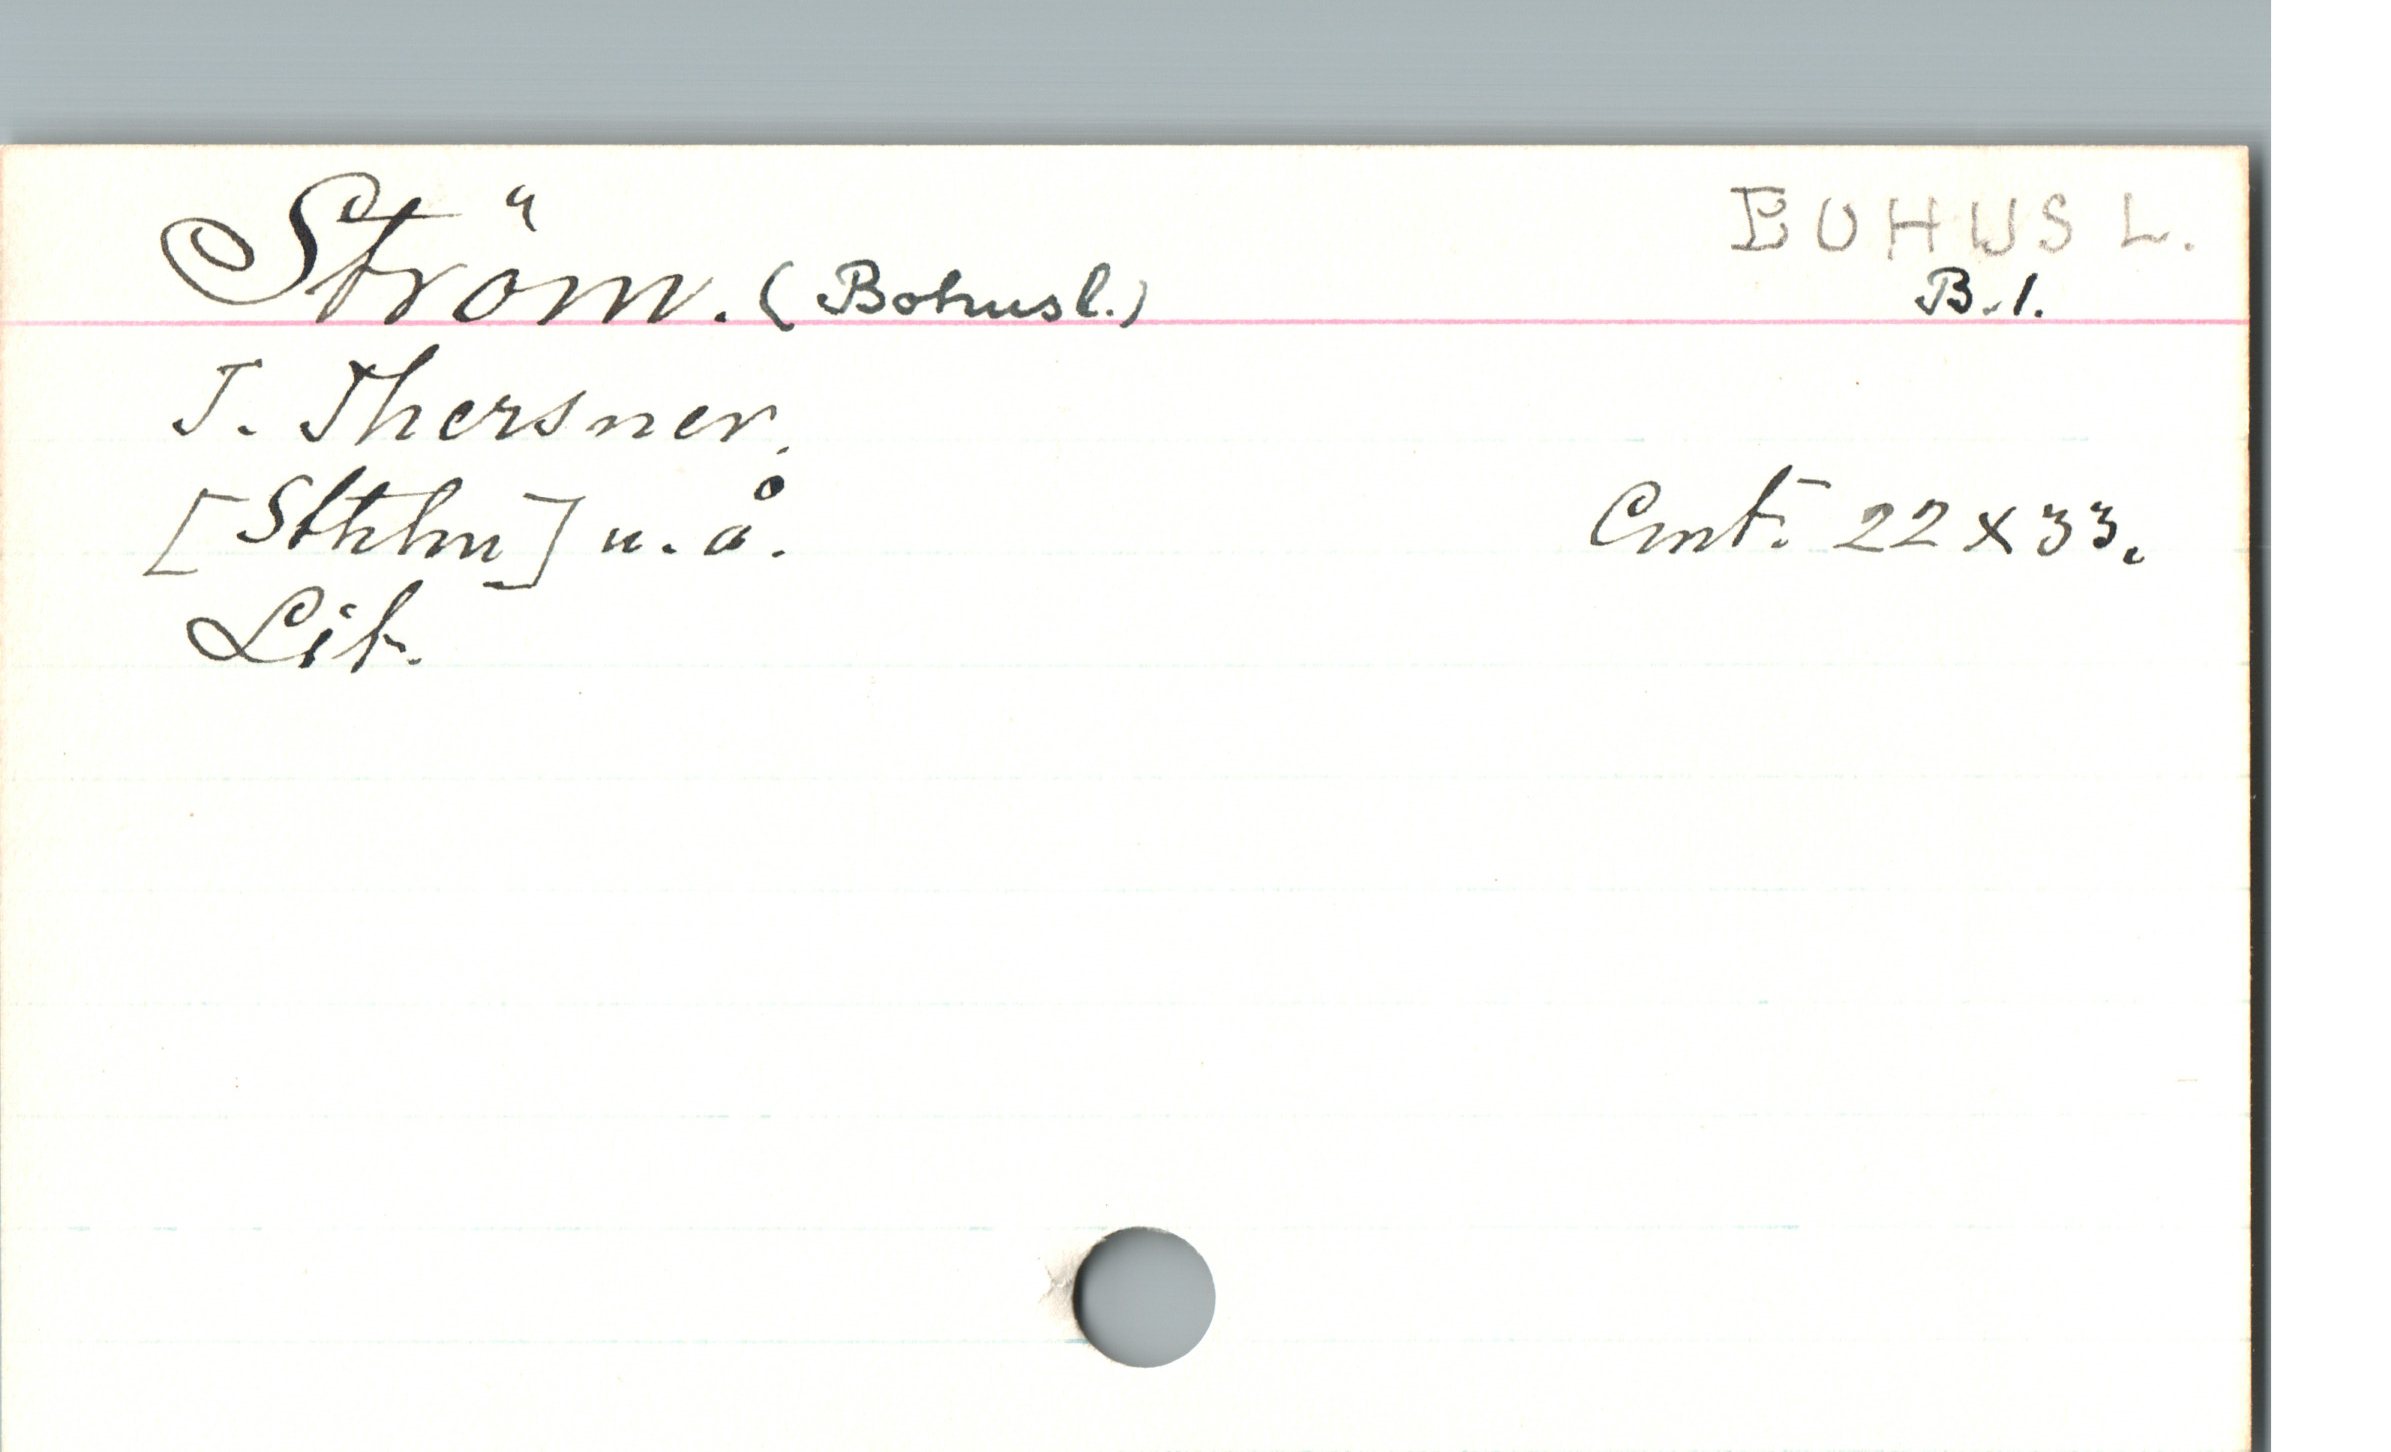 Ström. (Bohusl.)
BOHUSL.
B.1.
T. Thersner.
[Sthlm] u. å.
Cmt. 22 x 33.
Lit.